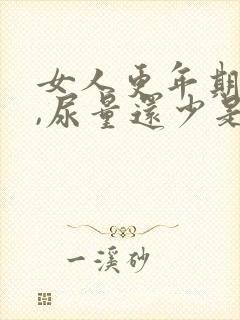 女人更年期
,尿量還少是
一溪砂